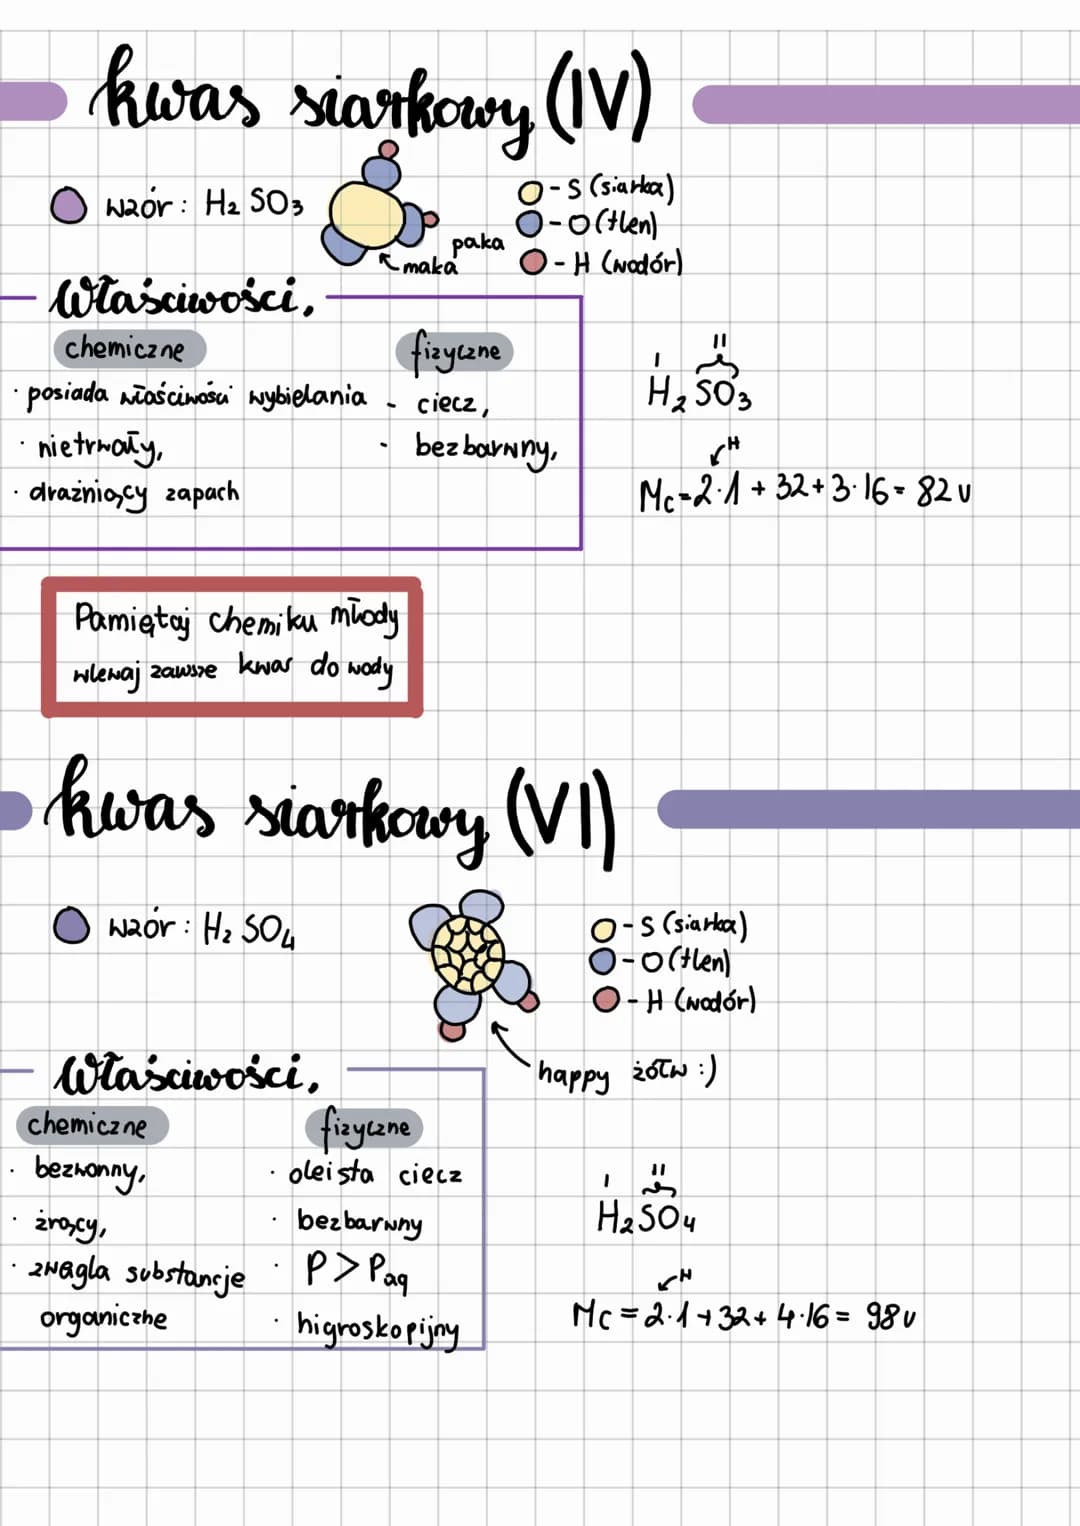 kwas siarkowy (IV)
wzór: H₂SO₃
- S (siarka)
- O (tlen)
- H (wodór)
paka
maka
Właściwości,
chemiczne
fizyczne
· posiada właściwości wybielania
· nietrwały,
· drażniący zapach
- ciecz,
- bezbarwny,
I II
H₂SO₃
H
Mc=2·1+32+3·16=82u
Pamiętaj chemiku młody
wlewaj zawsze kwas do wody
kwas siarkowy (VI)
wzór: H₂SO₄
- S (siarka)
- O (tlen)
- H (wodór)
happy żółw :)
Właściwości,
chemiczne
fizyczne
· bezwonny,
· żrący,
· zwęgla substancje
organiczne
· oleista ciecz
· bezbarwny
· p > paq
· higroskopijny
I II
H₂SO₄
H
Mc=2·1+32+4·16=98u